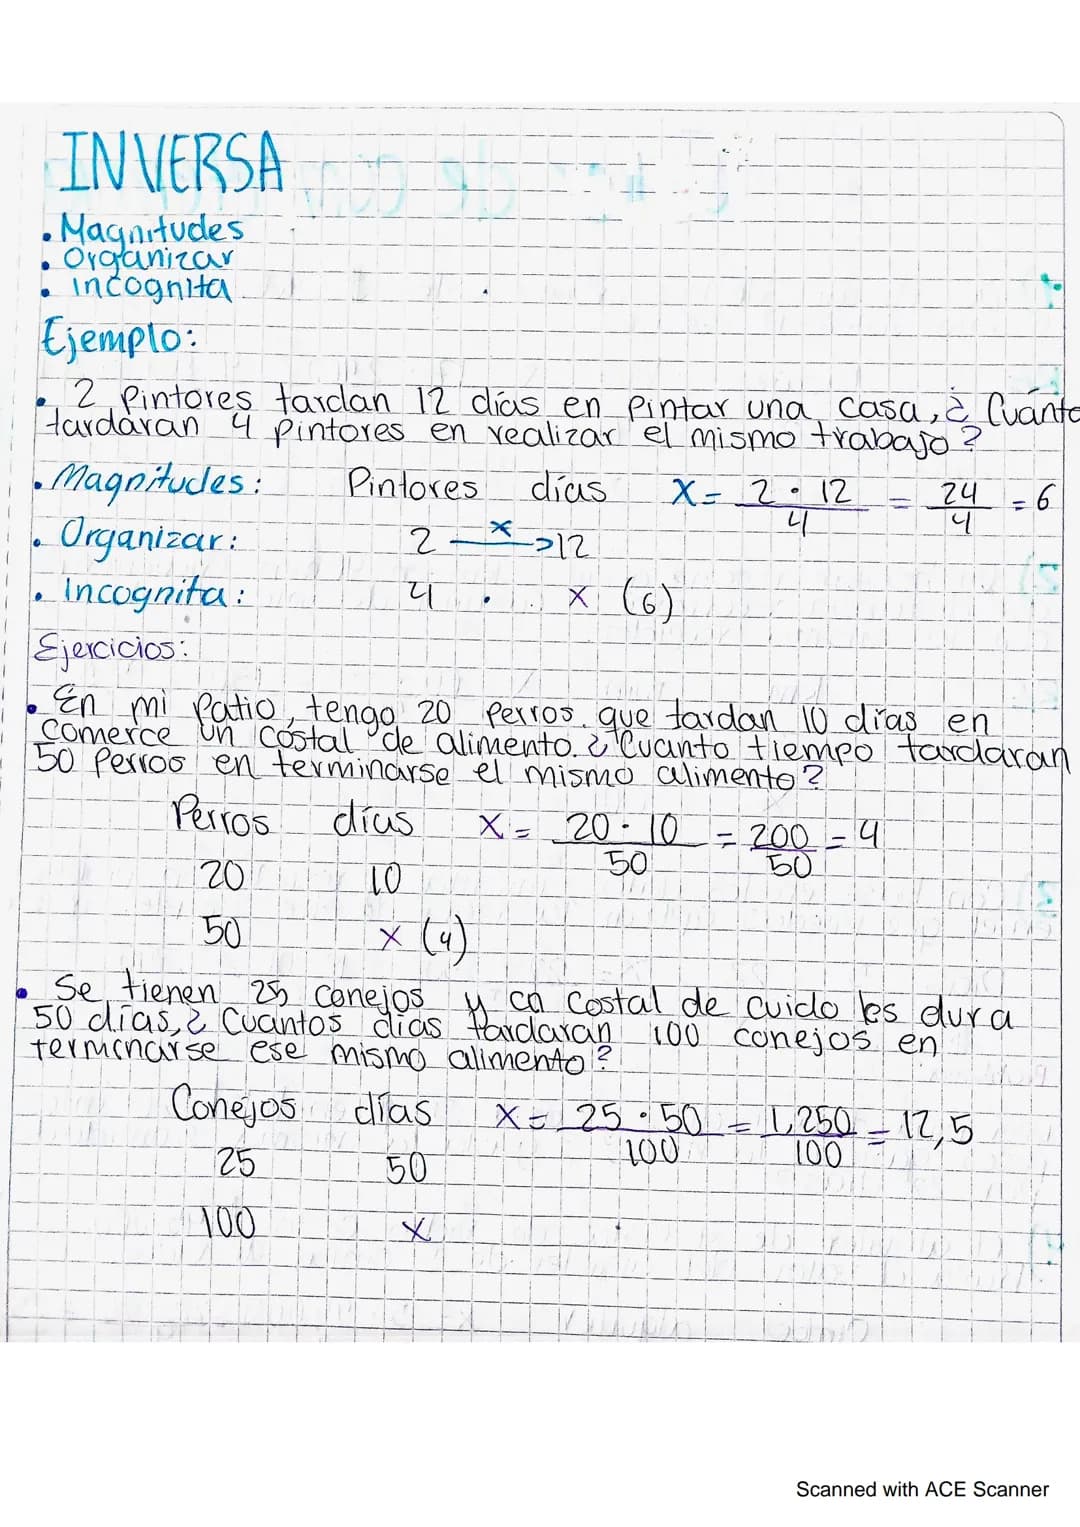 INVERSA
• Magnitudes
• Organizar
• incognita
Ejemplo:
• 2 Pintores tardan 12 días en pintar una casa, ¿ Cuánto
tardaran 4 pintores en realizar el mismo trabajo?
• Magnitudes: Pintores días X = 2 · 12 / 4 = 24 / 4 = 6
• Organizar: 2 —x—> 12
• Incognita: 4 x (6)
Ejercicios:
• En mi patio, tengo 20 perros que tardan 10 días en
comerce un costal de alimento. ¿ Cuanto tiempo tardaran
50 perros en terminarse el mismo alimento?
Perros días X = 20 · 10 / 50 = 200 / 50 = 4
20 10
50 x (4)
• Se tienen 25 conejos y un costal de cuido les dura
50 días, ¿ Cuantos días tardaran 100 conejos en
terminarse ese mismo alimento?
Conejos días X = 25 · 50 / 100 = 1,250 / 100 = 12,5
25 50
100 x
Scanned with ACE Scanner